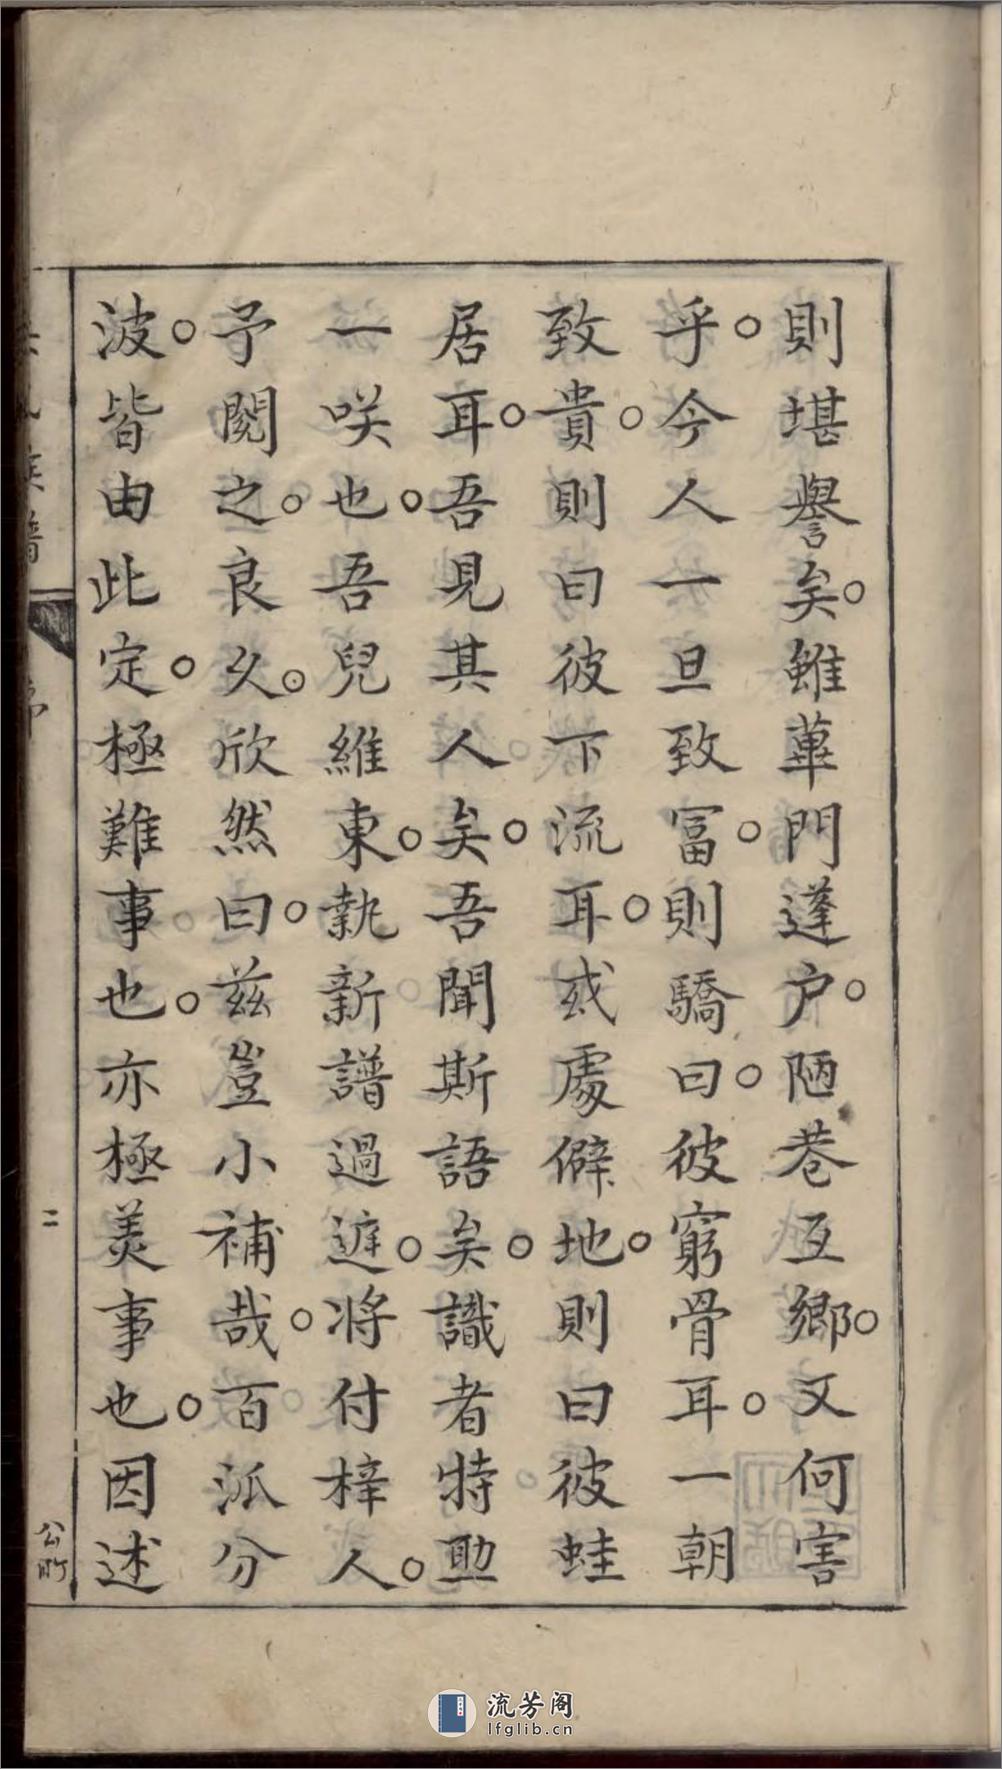 則堪譽矣。雖蓽門蓬户。陋巷互鄉。又何害
乎。今人一旦致冨。則驕曰。彼窮骨耳。一朝
致貴。則曰彼下流耳。或處僻地。則曰彼蛙
居耳。吾見其人矣。吾聞斯語矣。識者特
一咲也。吾兒維東。執新譜過遮。将付梓人。
予閱之。良久。欣然曰。兹豈小補哉。百派分
波。皆由此定。極難事也。亦極美事也。因述
族譜
二
流芳阁
lfglib.cn